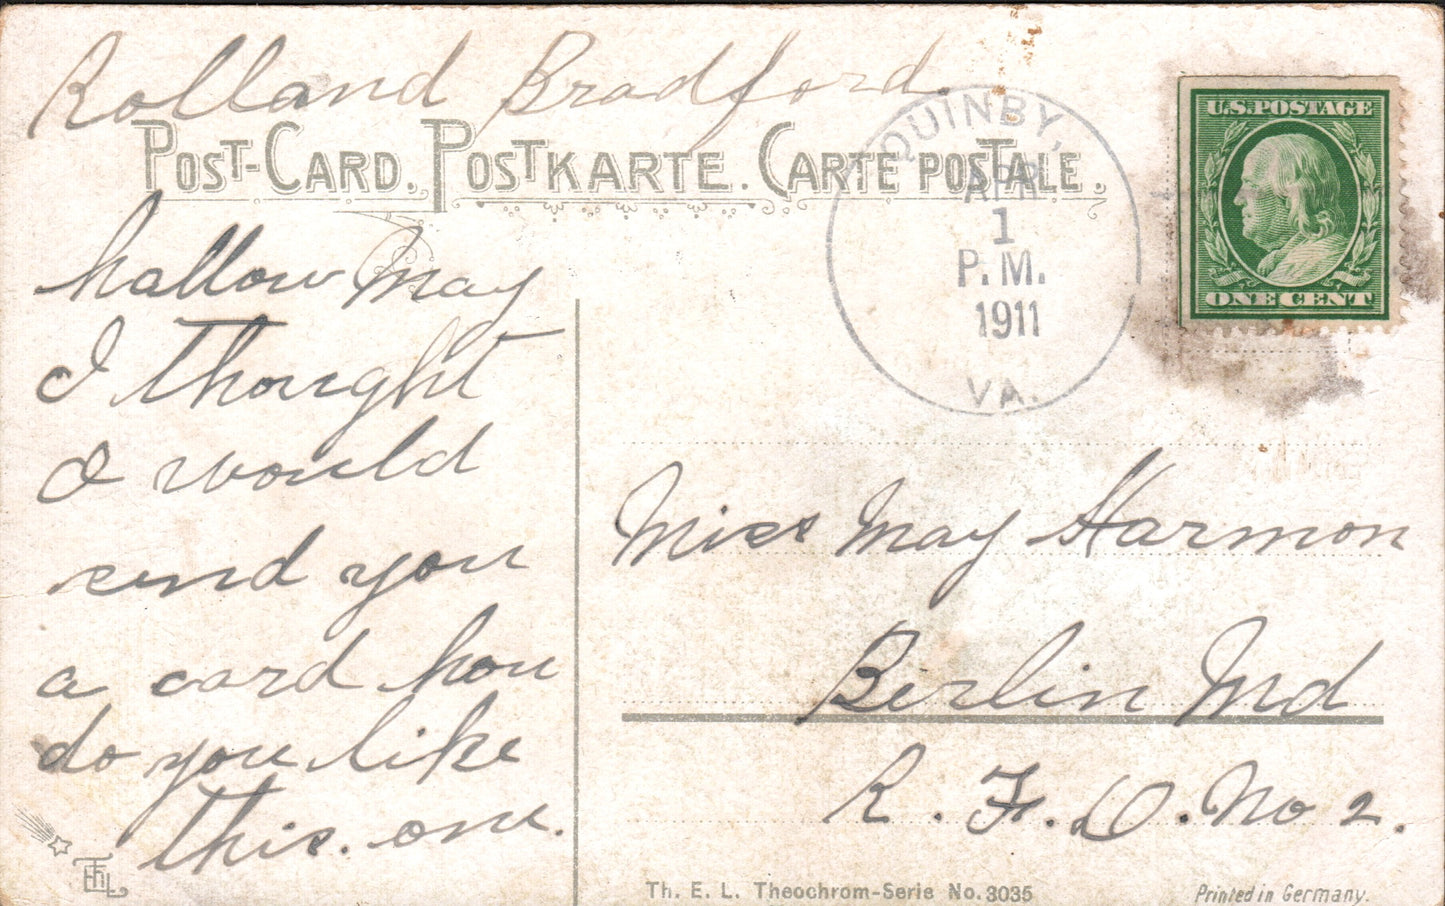 Rolland Bradford.
POST-CARD. POSTKARTE. CARTE POSTALE.
QUINBY,
APR
1
P.M.
1911
VA.
U.S. POSTAGE
ONE CENT
hallow May
I thought
I would
send you
a card hou
do you like
this. one.
Miss May Harmon
Berlin Md
R. F. D. No 2.
Th. E. L. Theochrom-Serie No. 3035
Printed in Germany.